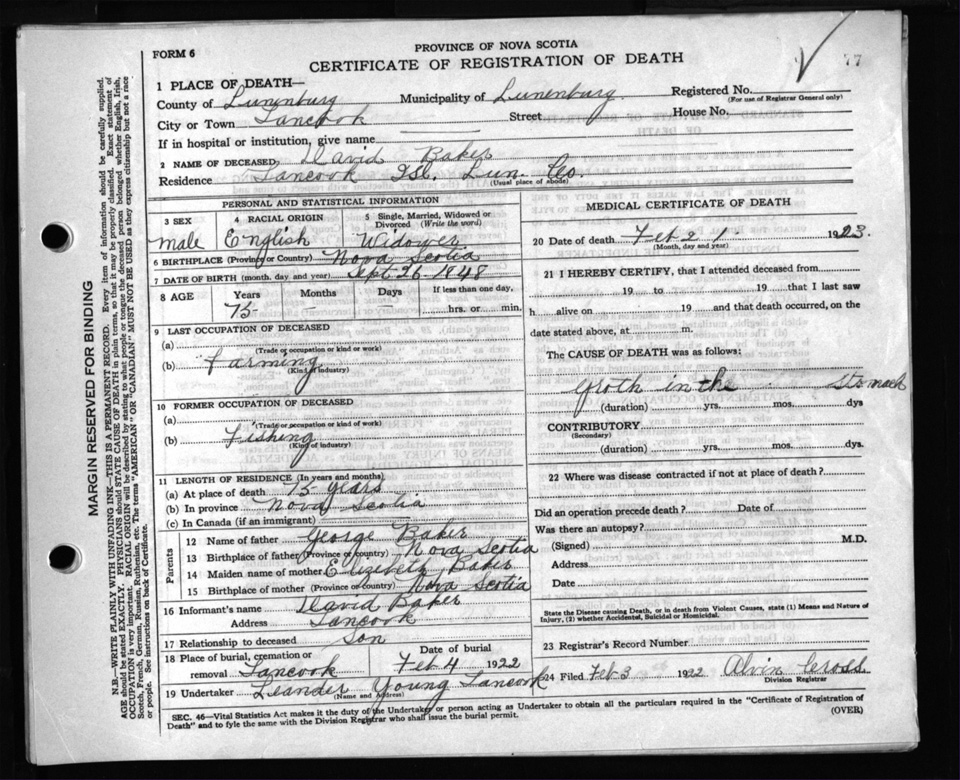 PROVINCE OF NOVA SCOTIA
FORM 6
CERTIFICATE OF REGISTRATION OF DEATH
77
1 PLACE OF DEATH—
County of Lunenburg Municipality of Lunenburg Registered No.
(For use of Registrar General only)
City or Town Tancook Street House No.
If in hospital or institution, give name
2 NAME OF DECEASED, David Baker
Residence Tancook Isl. Lun. Co.
(Usual place of abode)
PERSONAL AND STATISTICAL INFORMATION
3 SEX 4 RACIAL ORIGIN 5 Single, Married, Widowed or Divorced (Write the word)
male English Widower
6 BIRTHPLACE (Province or Country) Nova Scotia
7 DATE OF BIRTH (month, day and year) Sept 26 - 1848
8 AGE Years Months Days If less than one day,
75 - - hrs. or min.
9 LAST OCCUPATION OF DECEASED
(a)
(Trade or occupation or kind or work)
(b) Farming
(Kind of industry)
10 FORMER OCCUPATION OF DECEASED
(a)
(Trade or occupation or kind of work)
(b) Fishing
(Kind of industry)
11 LENGTH OF RESIDENCE (In years and months)
(a) At place of death 75 years
(b) In province Nova Scotia
(c) In Canada (if an immigrant)
Parents
12 Name of father George Baker
13 Birthplace of father (Province or country) Nova Scotia
14 Maiden name of mother Elizebeth Baker
15 Birthplace of mother (Province or country) Nova Scotia
16 Informant's name David Baker
Address Tancook
17 Relationship to deceased Son
18 Place of burial, cremation or removal Tancook
Date of burial
Feb 4 1922
19 Undertaker Leander Young Tancook
(Name and Address)
MEDICAL CERTIFICATE OF DEATH
20 Date of death Feb 2 1. 1923.
(Month, day and year)
21 I HEREBY CERTIFY, that I attended deceased from
19 to 19 that I last saw
h alive on 19 and that death occurred, on the
date stated above, at m.
The CAUSE OF DEATH was as follows:
Groth in the Stomach
(duration) yrs. mos. dys
CONTRIBUTORY
(Secondary)
(duration) yrs. mos. dys.
22 Where was disease contracted if not at place of death?
Did an operation precede death? Date of
Was there an autopsy?
(Signed) M.D.
Address
Date
State the Disease causing Death, or in death from Violent Causes, state (1) Means and Nature of
Injury, (2) whether Accidental, Suicidal or Homicidal.
23 Registrar's Record Number
24 Filed Feb 3 1922 Alvin Cross
Division Registrar
SEC. 46—Vital Statistics Act makes it the duty of the Undertaker or person acting as Undertaker to obtain all the particulars required in the "Certificate of Registration of
Death" and to fyle the same with the Division Registrar who shall issue the burial permit.
(OVER)
MARGIN RESERVED FOR BINDING
N.B.—WRITE PLAINLY WITH UNFADING INK—THIS IS A PERMANENT RECORD. Every item of information should be carefully supplied.
AGE should be stated EXACTLY. PHYSICIANS should STATE CAUSE OF DEATH in plain terms, so that it may be properly classified. Exact statement of
OCCUPATION is very important. RACIAL ORIGIN will be described by stating to what people or tongue the deceased person belonged whether English, Irish,
Scotch, French, German, Russian, Ruthenian, etc. The terms "AMERICAN" OR "CANADIAN" MUST NOT BE USED as they express citizenship but not a race
or people. See instructions on back of Certificate.